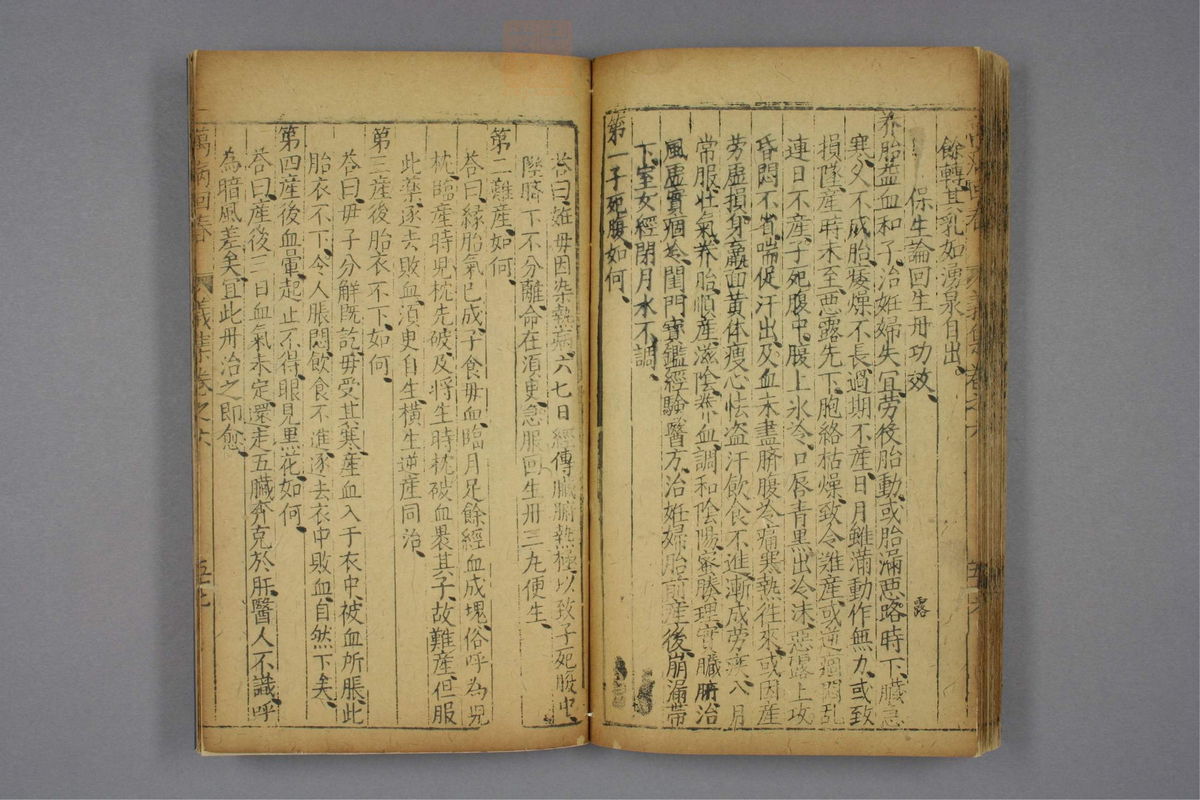 餘轉宜乳如湧泉自出、
保生論回生丹功效、
养胎益血和子、治妊婦失宜、劳後胎動、或胎漏惡路時下、臟急
露
寒、久不成胎、痿燥不長、過期不產、日月雖滿、動作無力、或致
損墜、產時未至、惡露先下、胞絡枯燥、致令難產、或逆痼閟乱
連日不產、子死腹中、腹上氷冷、口唇青黑、出冷沫、惡露上攻
昏悶不省、喘促汗出、及血未盡、臍腹冷痛、寒熱徃來、或因產
劳虛損、身羸面黃、体瘦心怯、盗汗、飲食不進、漸成劳疾、八月
常服、壯氣养胎、順產滋陰养血、調和陰陽、密腠理、實臟腑、治
風虛實痼冷、閨門寳鑑經驗醫方、治妊婦胎前產後、崩漏帶
下、室女經閉、月水不調、
第一子死腹如何、
荅曰、姙母因染熱病六七日、經傳臟腑、熱極、以致子死腹中、
墜臍下不分離、命在須臾、急服回生丹三丸便生、
第二難產如何、
荅曰、緣胎氣已成、子食母血、臨月足、餘經血成塊、俗呼為児
枕、臨產時児枕先破、及將生時、枕破血裹其子、故難產、但服
此藥、逐去敗血、須更自生、橫生逆產同治、
第三產後胎衣不下如何、
荅曰、母子分解既訖、母受其寒、產血入于衣中、被血所脹、此
胎衣不下、令人脹悶、飲食不進、逐去衣中敗血、自然下矣、
第四產後血暈、起止不得、眼見黑花、如何、
荅曰、產後三日、血氣未定、還走五臟、奔克於肝、醫人不識、呼
為暗風、差矣、宜此丹治之即愈、
萬病回春 義集卷之六